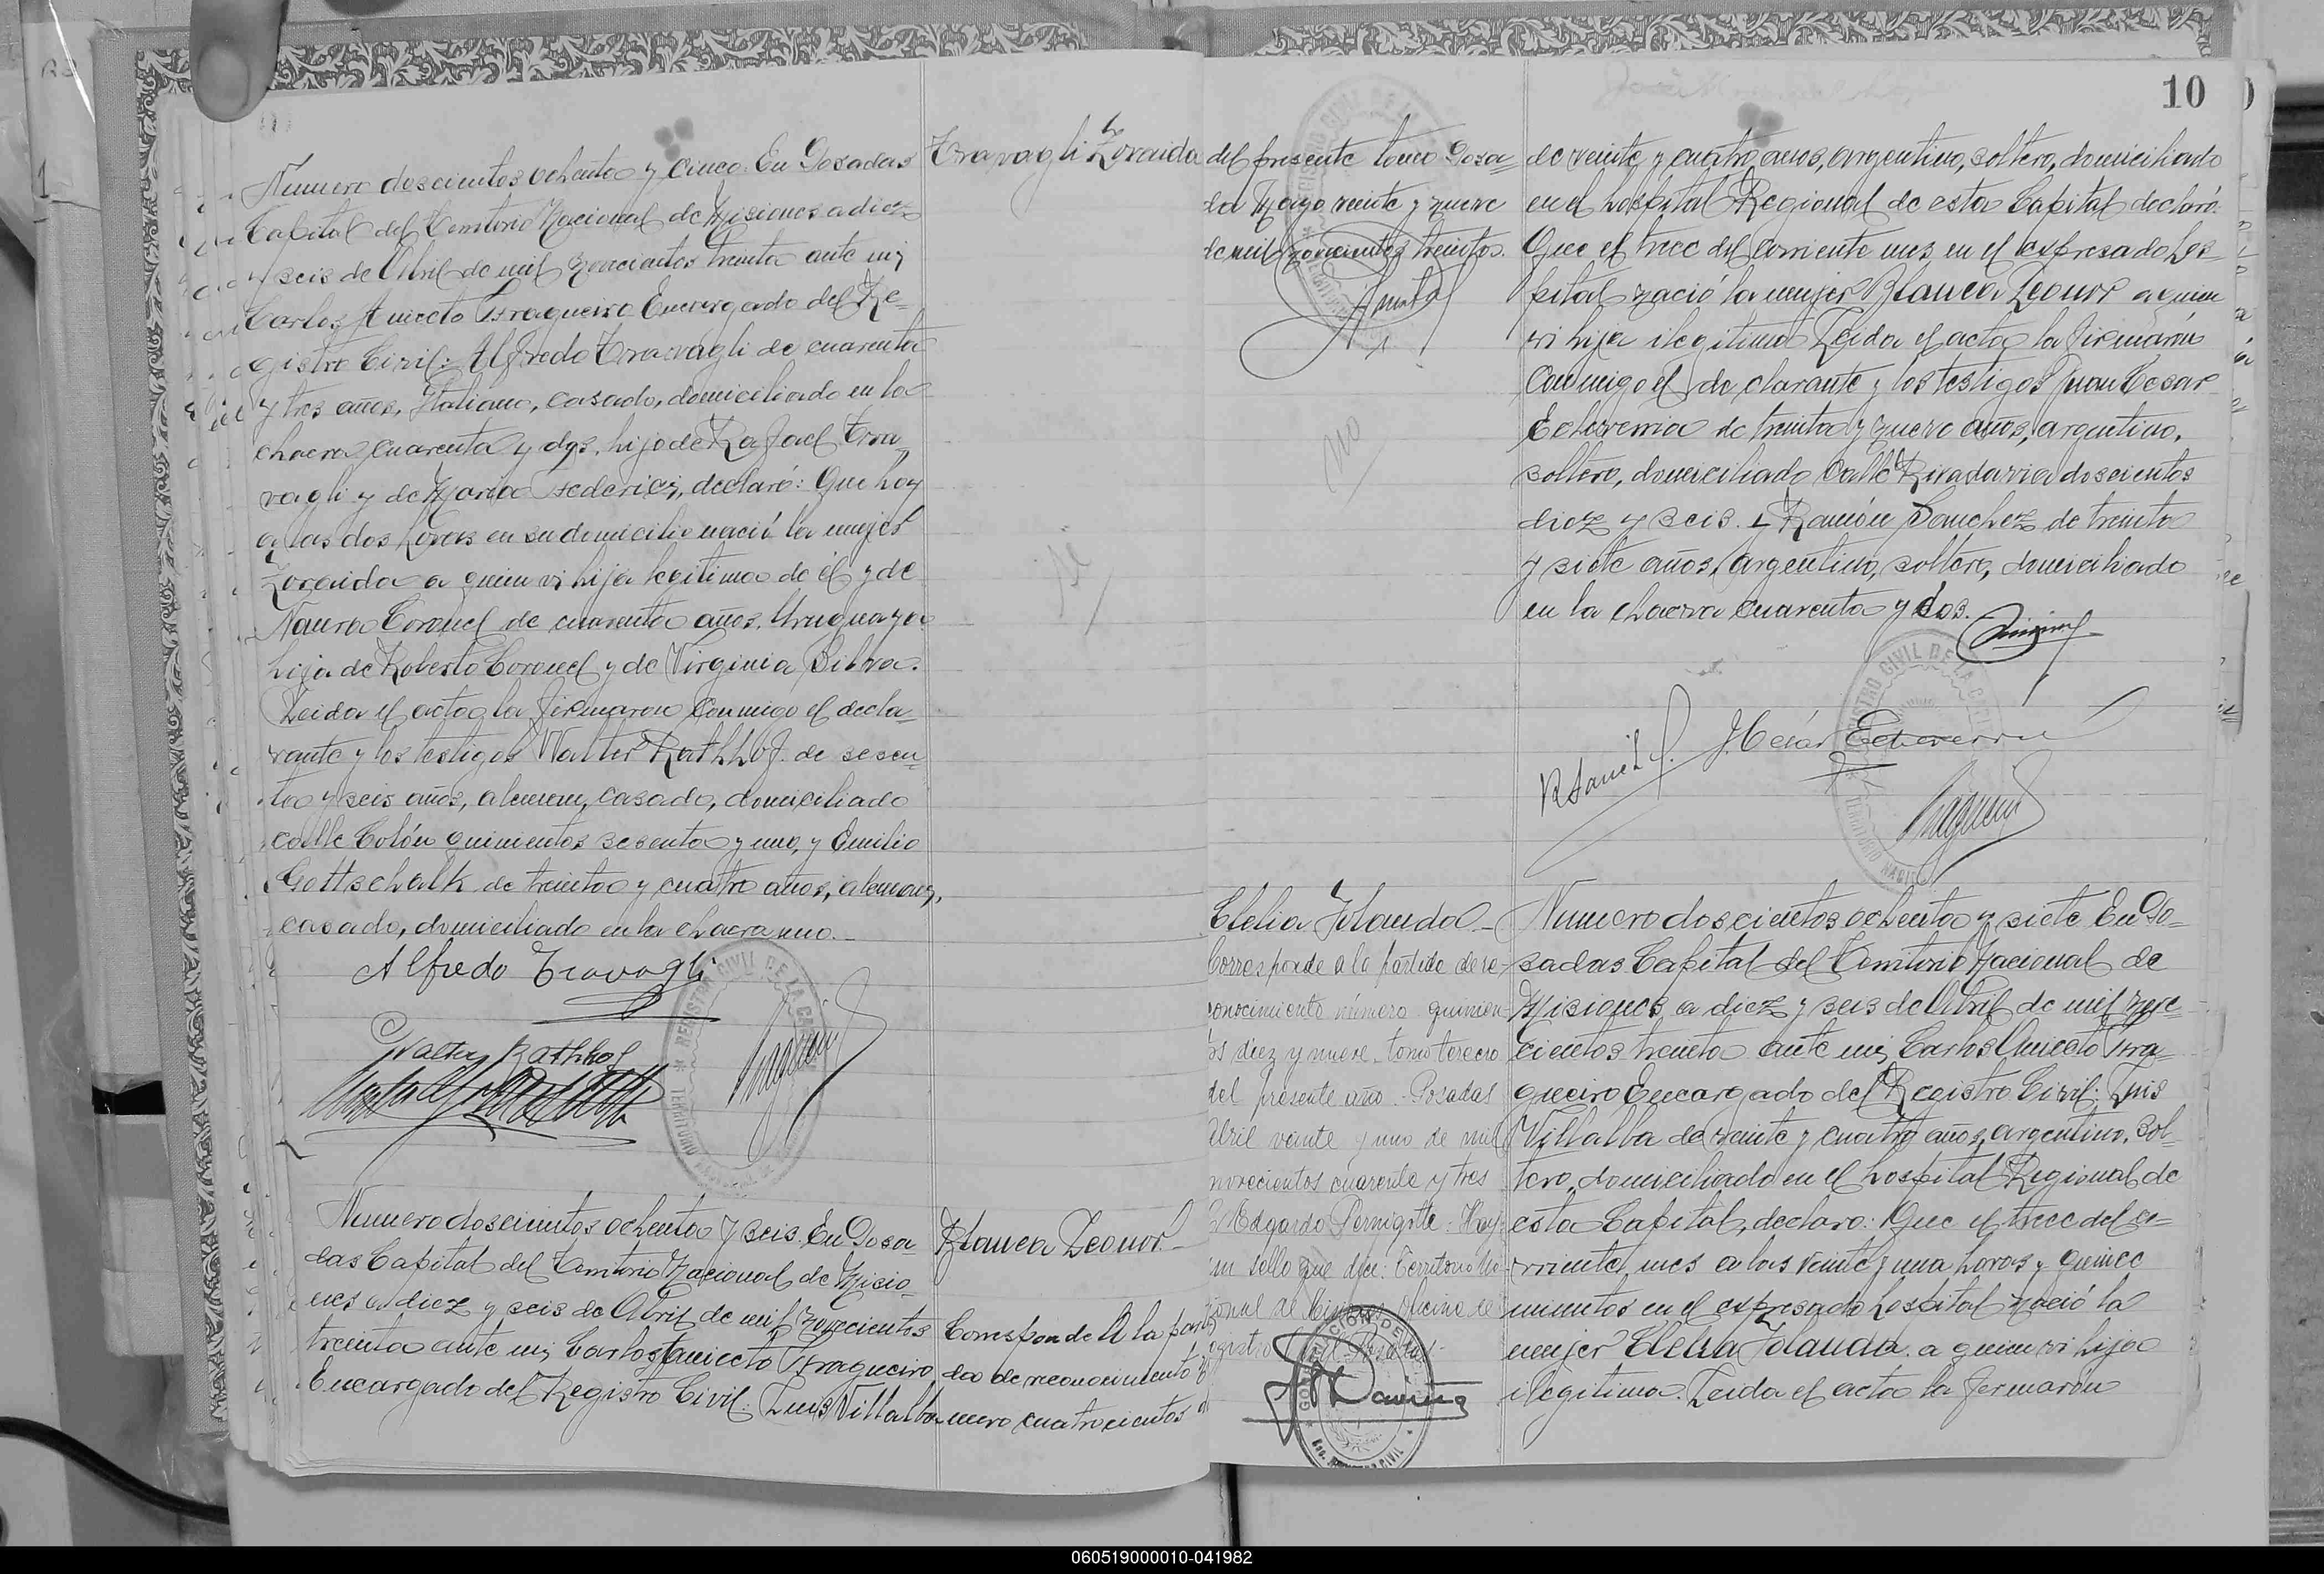 Numero doscientos ochenta y cinco. En Posadas
Capital del Territorio Nacional de Misiones a diez
y seis de Abril de mil novecientos treinta ante mi,
Carlos Aniceto Fragueiro Encargado del Re-
gistro Civil: Alfredo Travagli de cuarenta
y tres años, Italiano, casado, domiciliado en la
chacra cuarenta y dos, hijo de Rafael Tra-
vagli y de Maria Federici, declaró: Que hoy
a las dos horas en su domicilio nació la mujer
Zoraida a quien vi hija legitima de él y de
Naura Coronel de cuarenta años, Uruguaya
hija de Roberto Coronel y de Virginia Silva.
Leida el acta la firmaron conmigo el decla-
rante y los testigos Walter Rathhof de sesen-
ta y seis años, aleman, casado, domiciliado
calle Colón quinientos sesenta y uno, y Emilio
Gottschalk de treinta y cuatro años, aleman,
casado, domiciliado en la chacra uno.-
Alfredo Travagli
Walter Rathhof
Numero doscientos ochenta y seis. En Posa-
das Capital del Territorio Nacional de Misio-
nes a diez y seis de Abril de mil novecientos
treinta ante mi, Carlos Aniceto Fragueiro
Encargado del Registro Civil: Luis Villalba
Travagli Zoraida
Blanca Leonor-
Corresponde a la parti
da de reconocimiento
mero cuatrocientos
10
del presente tomo Posa-
da Mayo veinte y nueve
de mil novecientos treinta.
no
de veinte y cuatro años, argentino, soltero, domiciliado
en el hospital Regional de esta Capital declaró:
Que el trece del corriente mes en el expresado hos-
pital nació la mujer Blanca Leonor a quien
vi hija ilegitima Leida el acta la firmaron
conmigo el declarante y los testigos Juan Cesar
Echeverria de treinta y nueve años, argentino,
soltero, domiciliado calle Rivadavia doscientos
diez y seis. y Ramón Sanchez de treinta
y siete años, argentino, soltero, domiciliado
en la chacra cuarenta y dos.
J. César Echeverria
Clelia Yolanda-
Corresponde a la partida de re-
conocimiento número quinien-
tos diez y nueve tomo tercero
del presente año.- Posadas
Abril veinte y uno de mil
novecientos cuarenta y tres
Edgardo Pernigotte: Hay
un sello que dice: Territorio Na-
cional de Misiones Oficina de
Registro Civil Posadas-
Numero doscientos ochenta y siete En Po-
sadas Capital del Territorio Nacional de
Misiones a diez y seis de Abril de mil nove-
cientos treinta ante mi, Carlos Aniceto Fra-
gueiro Encargado del Registro Civil: Luis
Villalba de veinte y cuatro años, argentino, sol-
tero, domiciliado en el hospital Regional de
esta Capital, declaro: Que el trece del co-
rriente mes a las veinte y una horas y quince
minutos en el expresado hospital nació la
mujer Clelia Yolanda a quien vi hija
ilegitima. Leida el acta la firmaron
060519000010-041982